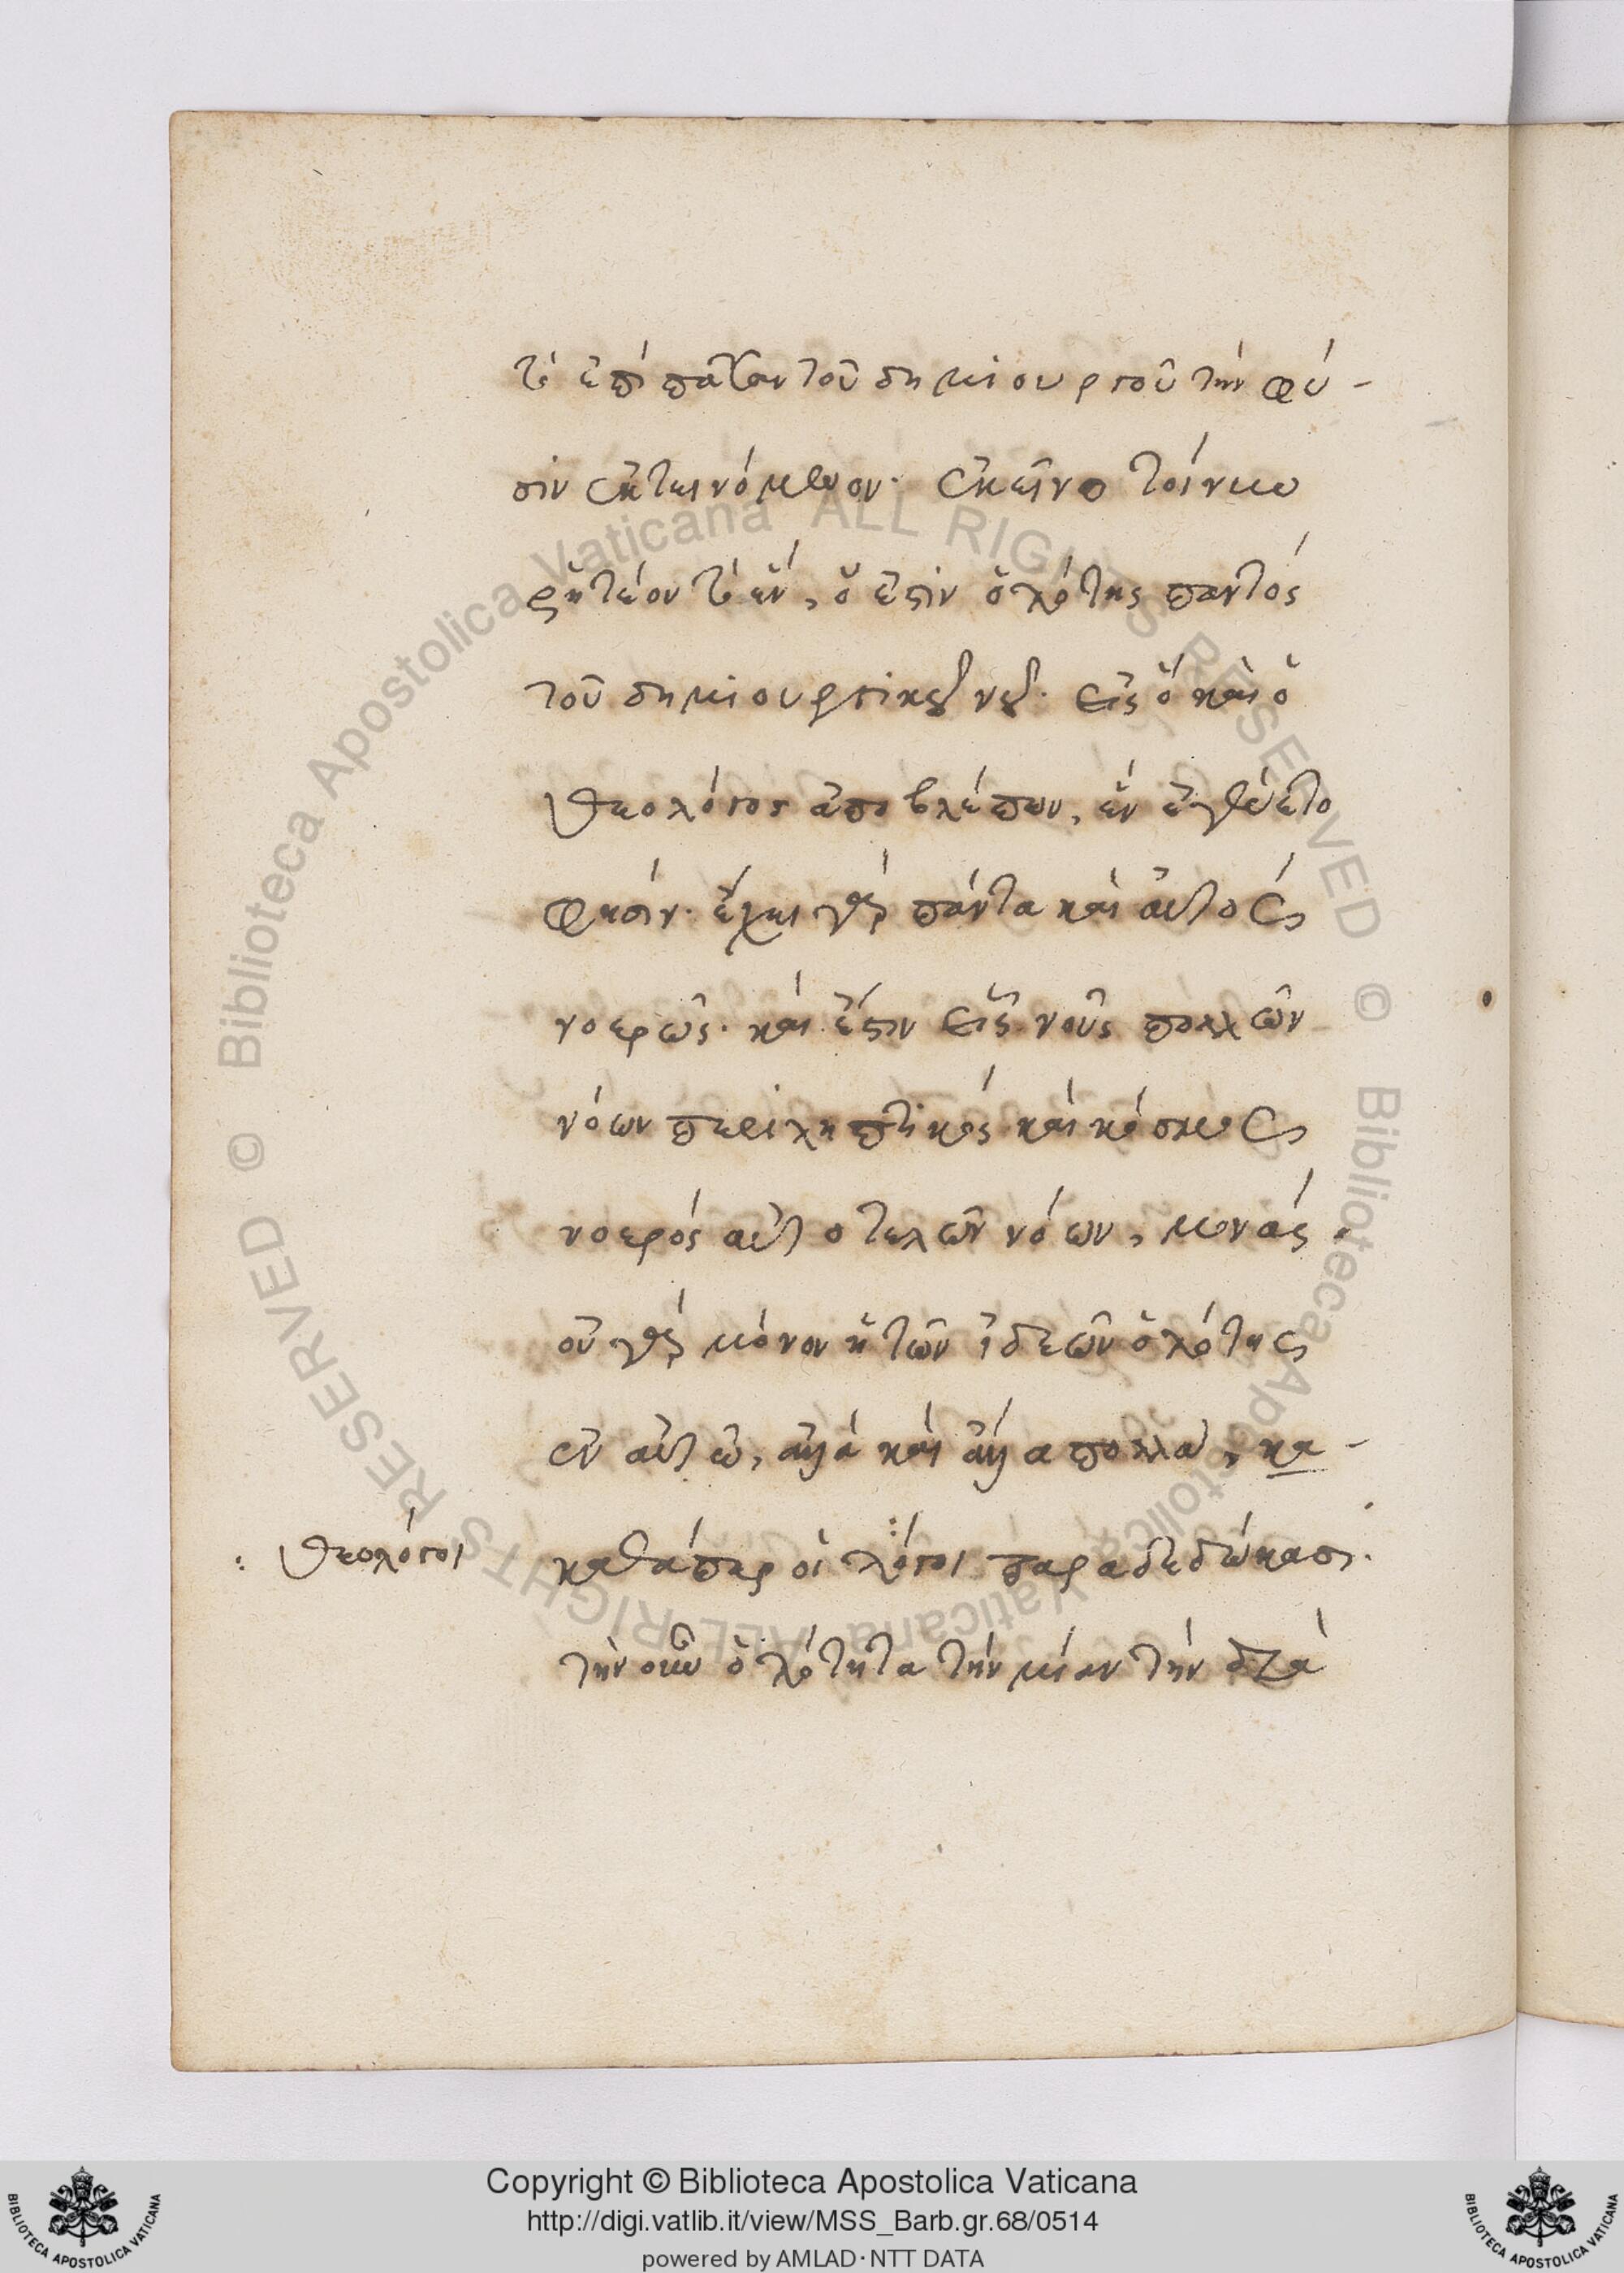 τὸ ἐπὶ πᾶσαν τοῦ δημιουργοῦ τὴν φύ-
σιν ἐκτεινόμενον· ἐκεῖνο τοίνυν
ῥητέον τὸ ἕν, ὅ ἐστιν ὁλότης παντός
τοῦ δημιουργικοῦ νοῦ· εἰς ὃ καὶ ὁ
θεολόγος ἀποβλέπων, ἓν ἐγένετο
φησίν· ἔχει γὰρ πάντα καὶ αὐτὸς
νοερῶς· καὶ ἔστιν εἷς νοῦς πολλῶν
νόων περιληπτικὸς καὶ κόσμος
νοερός αὐτοτελῶν νόων, μονάς·
οὐ γὰρ μόνον ἡ τῶν ἰδεῶν ὁλότης
ἐν αὐτῷ, ἀλλὰ καὶ ἄλλα πολλά, κα-
: θεολόγοι
καθάπερ οἱ λόγοι παραδεδώκασι·
τὴν οὖν ὁλότητα τὴν μίαν τὴν διὰ
Copyright © Biblioteca Apostolica Vaticana
http://digi.vatlib.it/view/MSS_Barb.gr.68/0514
powered by AMLAD · NTT DATA
BIBLIOTECA APOSTOLICA VATICANA
BIBLIOTECA APOSTOLICA VATICANA
© Biblioteca Apostolica Vaticana ALL RIGHTS RESERVED
© Biblioteca Apostolica Vaticana ALL RIGHTS RESERVED